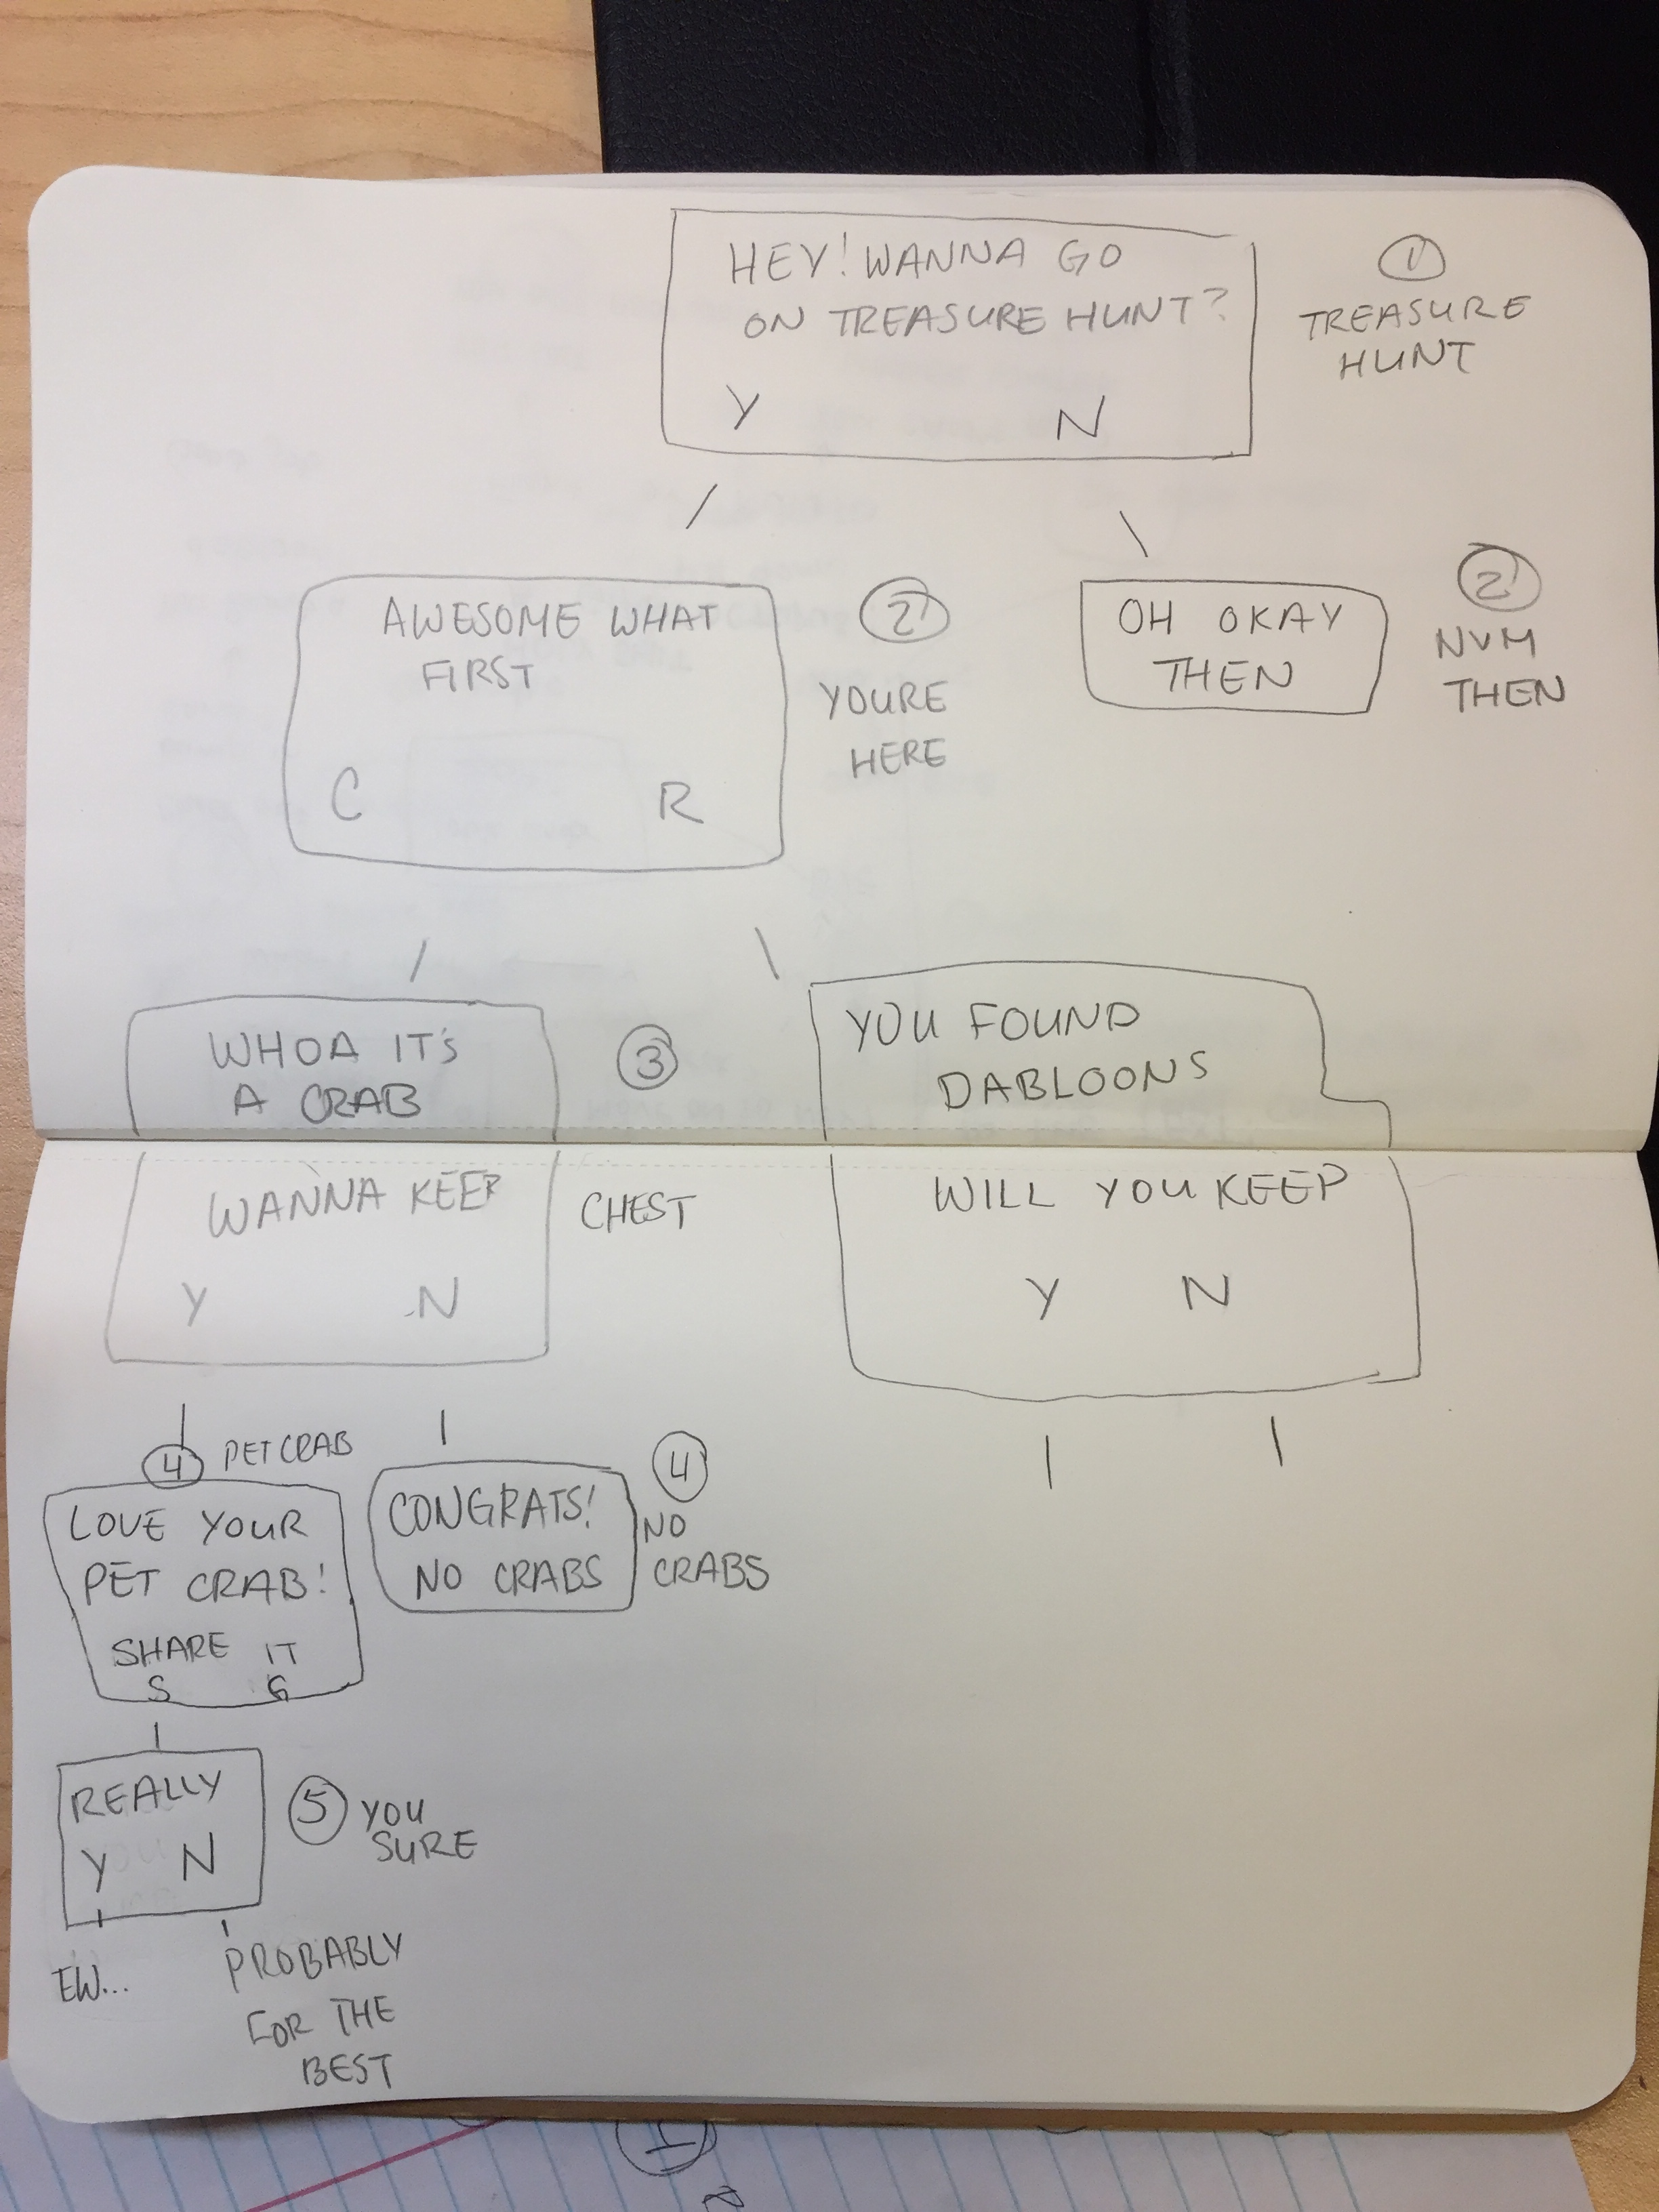 HEY! WANNA GO
ON TREASURE HUNT?
Y N
1
TREASURE
HUNT
AWESOME WHAT
FIRST
C R
2
YOURE
HERE
OH OKAY
THEN
2
NVM
THEN
WHOA IT'S
A CRAB
WANNA KEEP
Y N
3
CHEST
YOU FOUND
DABLOONS
WILL YOU KEEP
Y N
4 PET CRAB
LOVE YOUR
PET CRAB!
SHARE IT
S G
CONGRATS!
NO CRABS
4
NO
CRABS
REALLY
Y N
5 YOU
SURE
EW...
PROBABLY
FOR THE
BEST